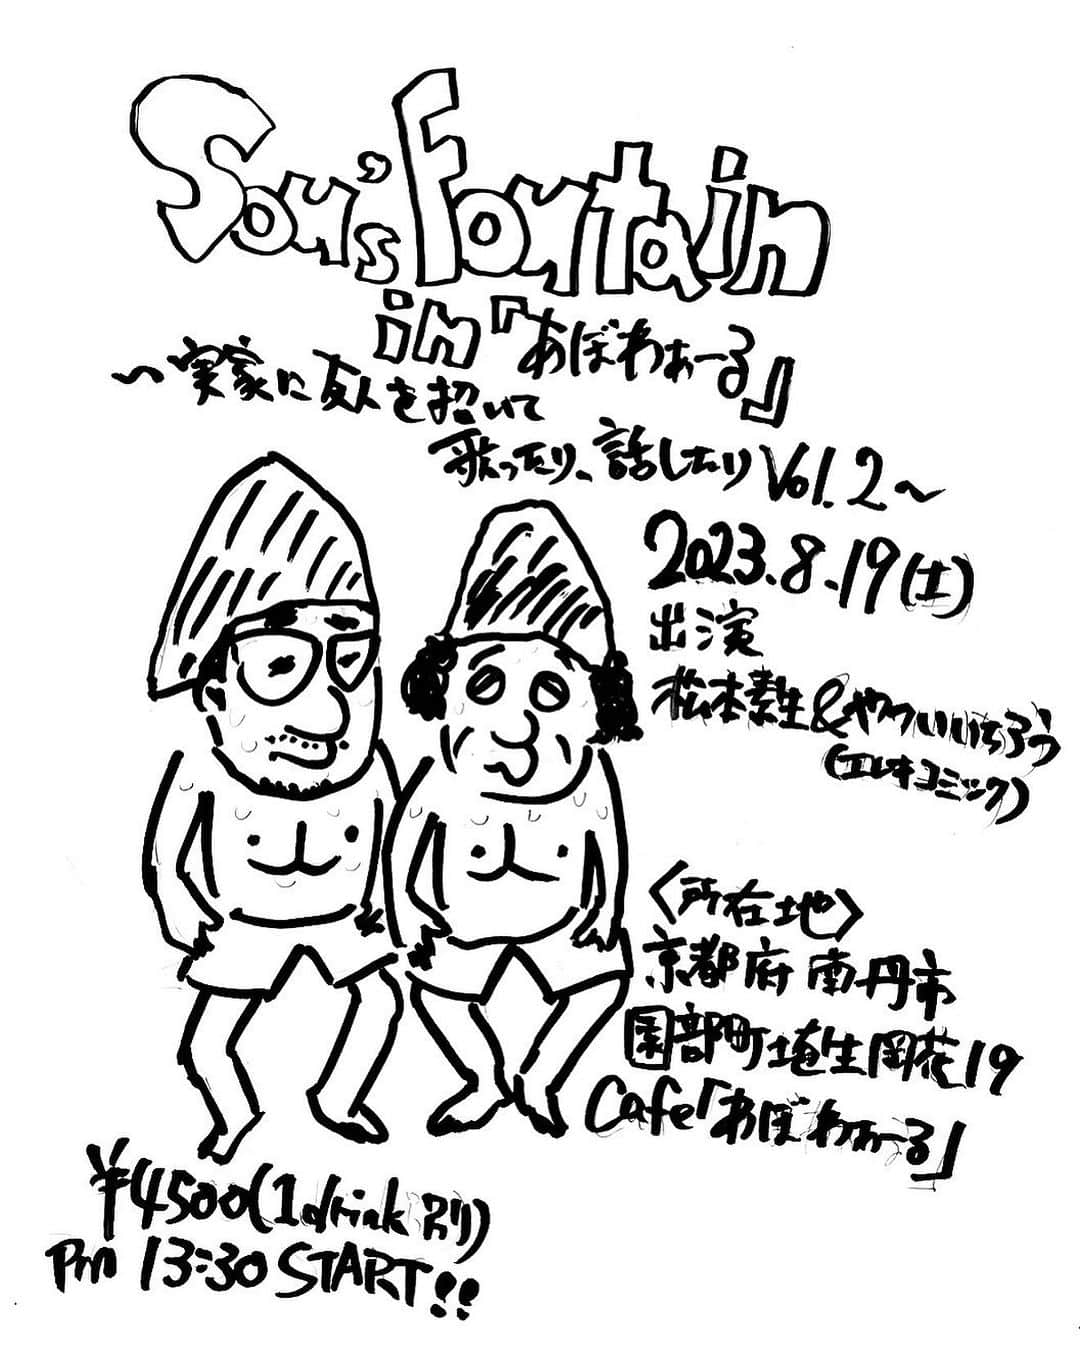 Sou's Fountain
in『あぼわぁーる』
〜実家に友人を招いて
歌ったり、話したり Vol.2〜
2023.8.19(土)
出演
松本素生&やついいちろう
(エレキコミック)
〈所在地〉
京都府南丹市
園部町埴生岡花19
Cafe「あぼわぁーる」
¥4500(1drink別)
Pm 13:30 START!!